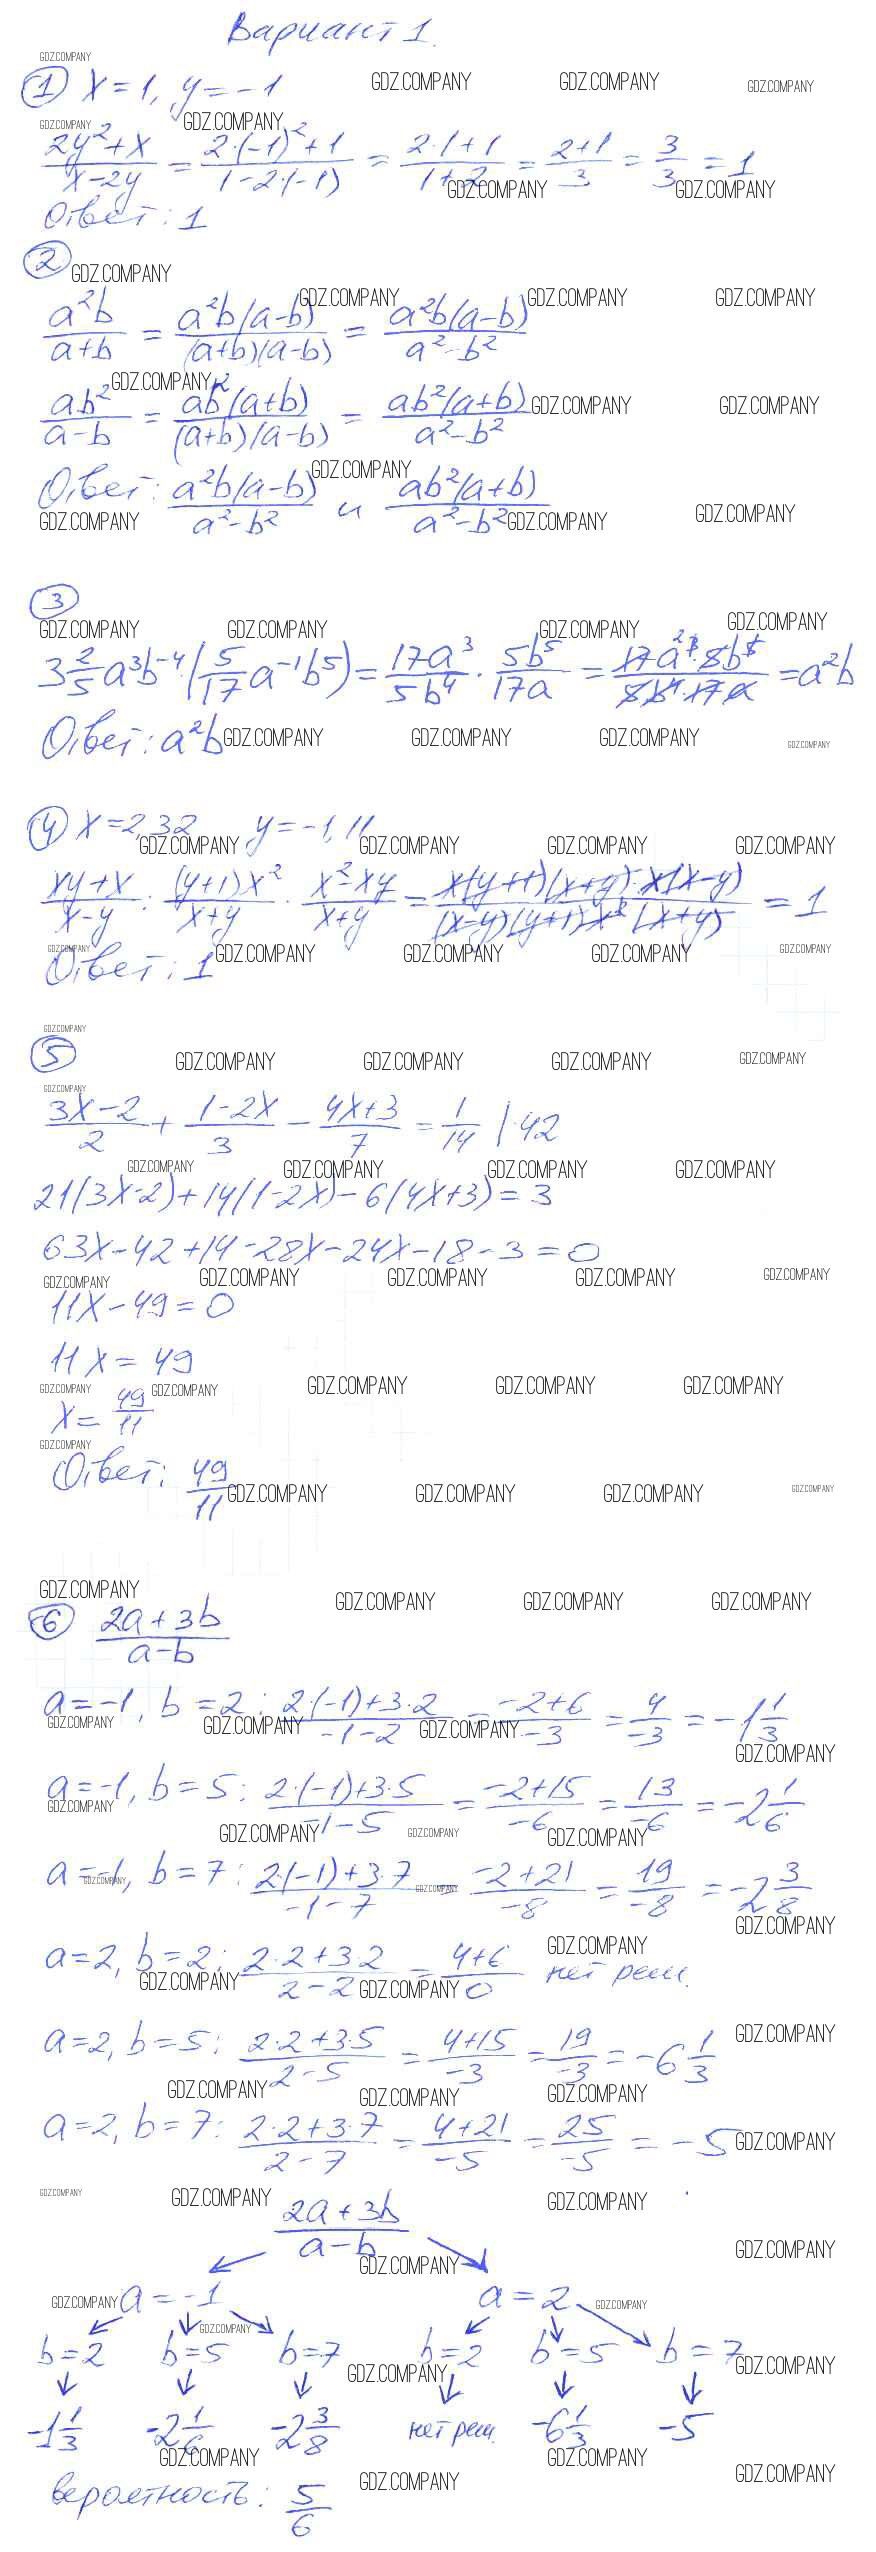 Вариант 1.
① x = 1, y = -1
(2y²+x)/(x-2y) = (2·(-1)²+1)/(1-2·(-1)) = (2·1+1)/(1+2) = (2+1)/3 = 3/3 = 1
Ответ: 1
②
a²b/(a+b) = a²b(a-b)/((a+b)(a-b)) = a²b(a-b)/(a²-b²)
ab²/(a-b) = ab²(a+b)/((a+b)(a-b)) = ab²(a+b)/(a²-b²)
Ответ: a²b(a-b)/(a²-b²) и ab²(a+b)/(a²-b²)
③
3 2/5 a³b⁻⁴·(5/17 a⁻¹b⁵) = 17a³/5b⁴ · 5b⁵/17a = 17a³·5b⁵/5b⁴·17a = a²b
Ответ: a²b
④ x = 2,32 y = -1,11
(xy+x)/(x-y) : (y+1)x²/(x+y) · (x²-xy)/(x+y) = x(y+1)(x+y)·x(x-y)/((x-y)(y+1)x²(x+y)) = 1
Ответ: 1
⑤
(3x-2)/2 + (1-2x)/3 - (4x+3)/7 = 1/14 |·42
21(3x-2)+14(1-2x)-6(4x+3) = 3
63x-42+14-28x-24x-18-3 = 0
11x-49 = 0
11x = 49
x = 49/11
Ответ: 49/11
⑥ (2a+3b)/(a-b)
a = -1, b = 2: (2·(-1)+3·2)/(-1-2) = (-2+6)/-3 = 4/-3 = -1 1/3
a = -1, b = 5: (2·(-1)+3·5)/(-1-5) = (-2+15)/-6 = 13/-6 = -2 1/6
a = -1, b = 7: (2·(-1)+3·7)/(-1-7) = (-2+21)/-8 = 19/-8 = -2 3/8
a = 2, b = 2: (2·2+3·2)/(2-2) = (4+6)/0 нет реш.
a = 2, b = 5: (2·2+3·5)/(2-5) = (4+15)/-3 = 19/-3 = -6 1/3
a = 2, b = 7: (2·2+3·7)/(2-7) = (4+21)/-5 = 25/-5 = -5
(2a+3b)/(a-b)
a = -1 a = 2
b = 2 b = 5 b = 7 b = 2 b = 5 b = 7
-1 1/3 -2 1/6 -2 3/8 нет реш. -6 1/3 -5
вероятность: 5/6
GDZ.COMPANY